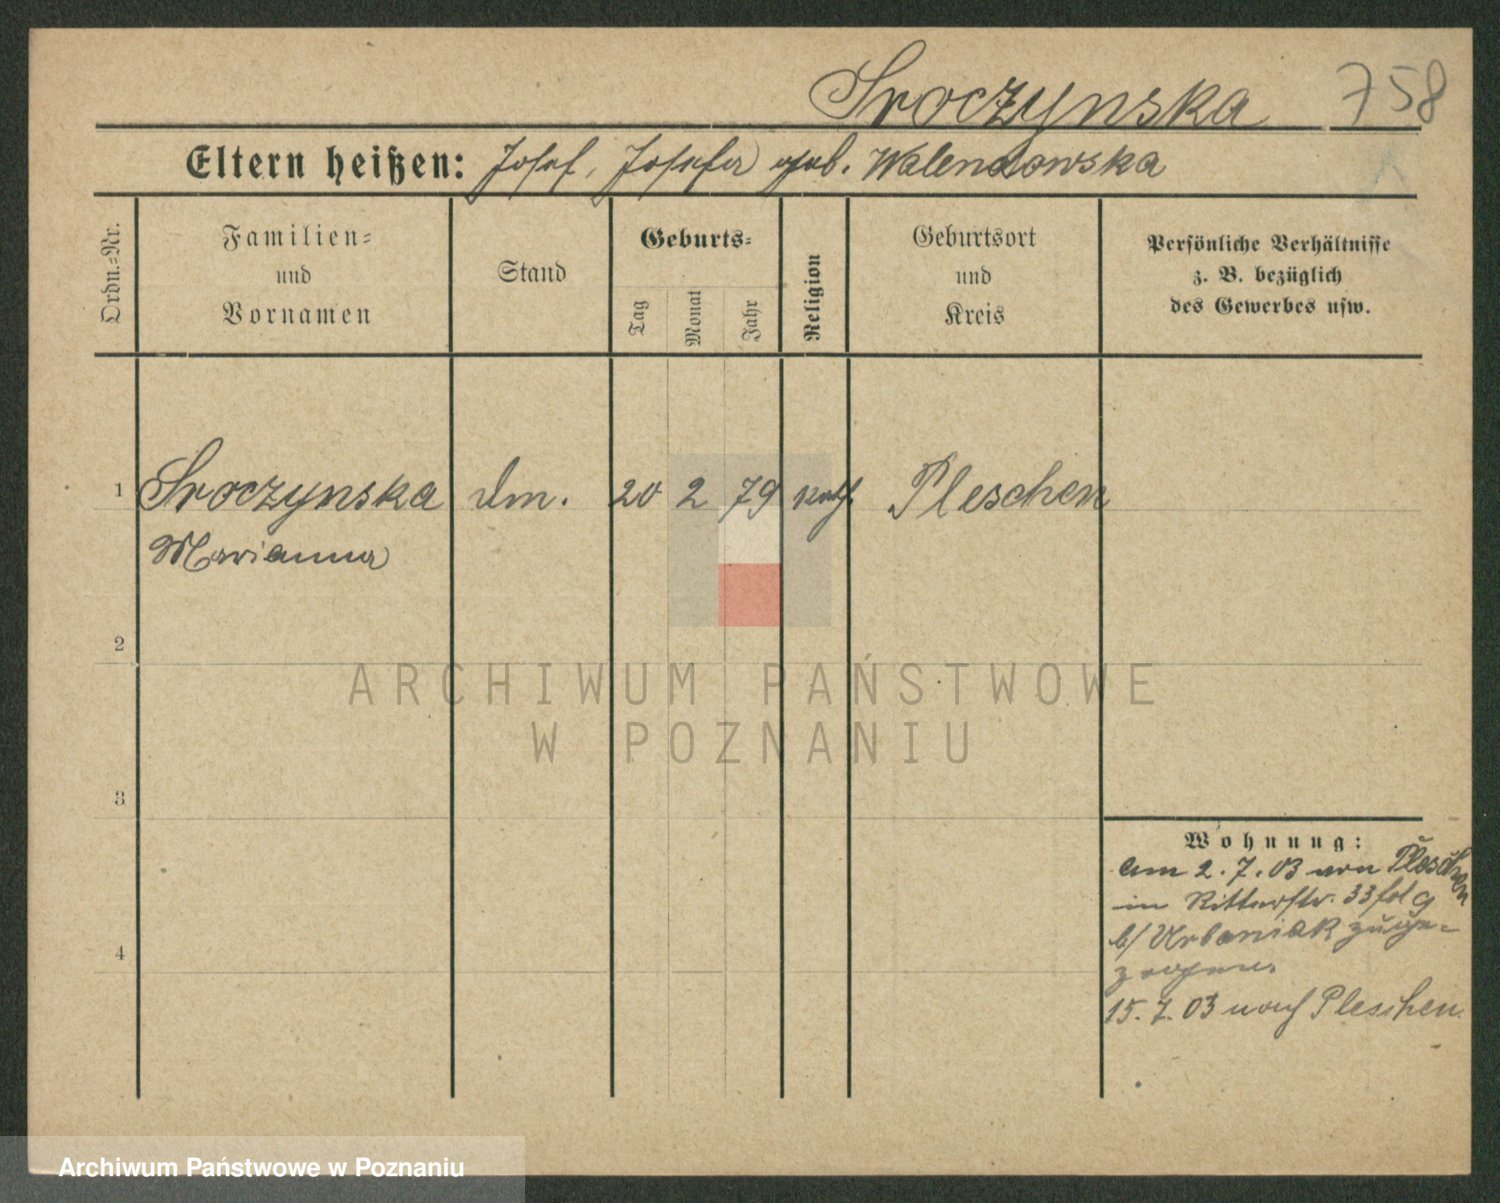 Sroczynska 758
Eltern heißen: Josef, Josefa geb. Walendowska
Ordn.-Nr.
Familien-
und
Vornamen
Stand
Geburts-
Tag
Monat
Jahr
Religion
Geburtsort
und
Kreis
Persönliche Verhältnisse
z. B. bezüglich
des Gewerbes usw.
1 Sroczynska 20 2 79 kath. Pleschen
Marianna
2
ARCHIWUM PAŃSTWOWE
W POZNANIU
3
Wohnung:
am 2. 7. 03 von Pleschen
in Ritterstr. 33
b/ Urbaniak zuge-
zogen.
4
15. 7. 03 nach Pleschen.
Archiwum Państwowe w Poznaniu